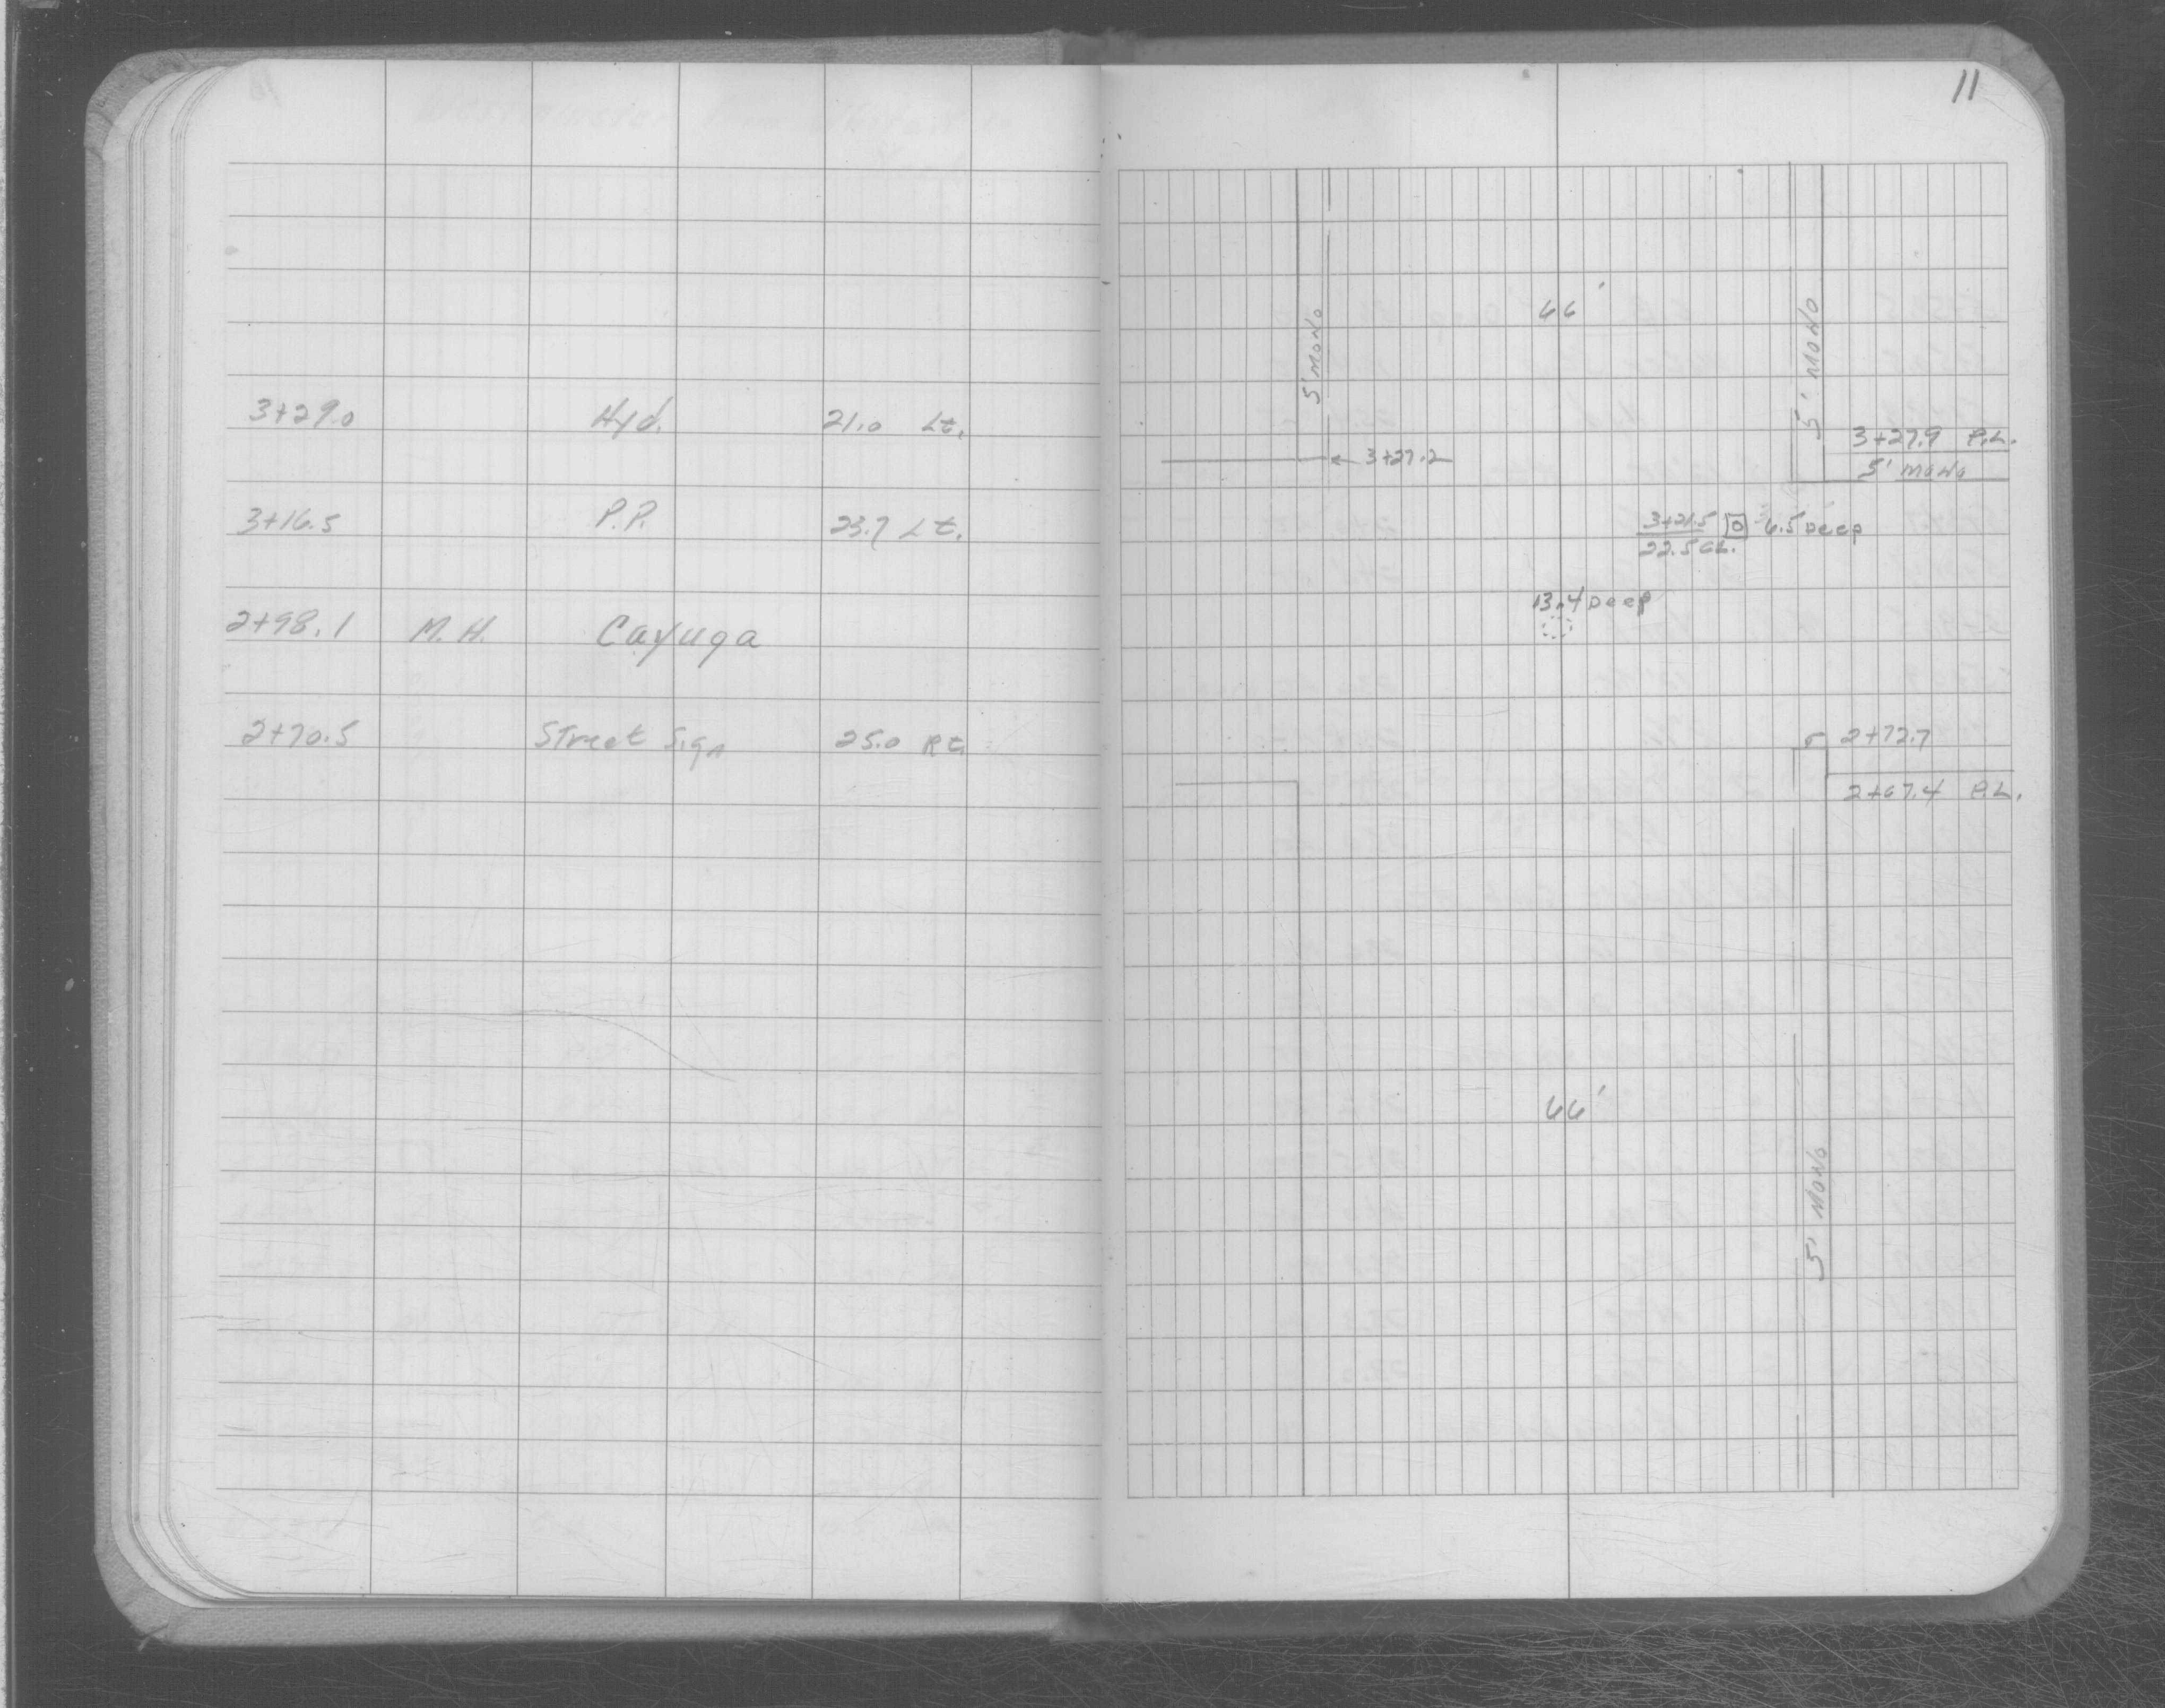 3+29.0 Hyd. 21.0 Lt.
3+16.5 P.P. 23.7 Lt.
2+98.1 M.H. Cayuga
2+70.5 Street Sign 25.0 Rt.
11
66'
5' MONO
5' MONO
3+27.9 P.L.
5' MONO
← 3+27.2
3+21.5 6.5 Deep
22.5 CL.
13.4 Deep
2+72.7
2+67.4 P.L.
66'
5' MONO